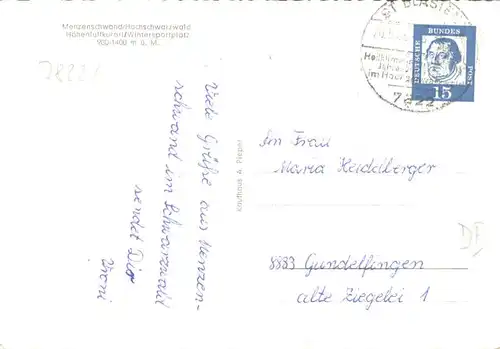 Menzenschwand/Hochschwarzwald
Höhenluftkurort/Wintersportplatz
900-1400 m ü. M.
7822
Viele Grüße aus Menzen-
schwand im Schwarzwald
sendet Dir
Vroni
Kaufhaus A. Pieper
ST BLASIEN
im Hoch
7822
DEUTSCHE
BUNDES
POST
15
An Frau
Maria Heidelberger
8883 Gundelfingen
alte Ziegelei 1
DI